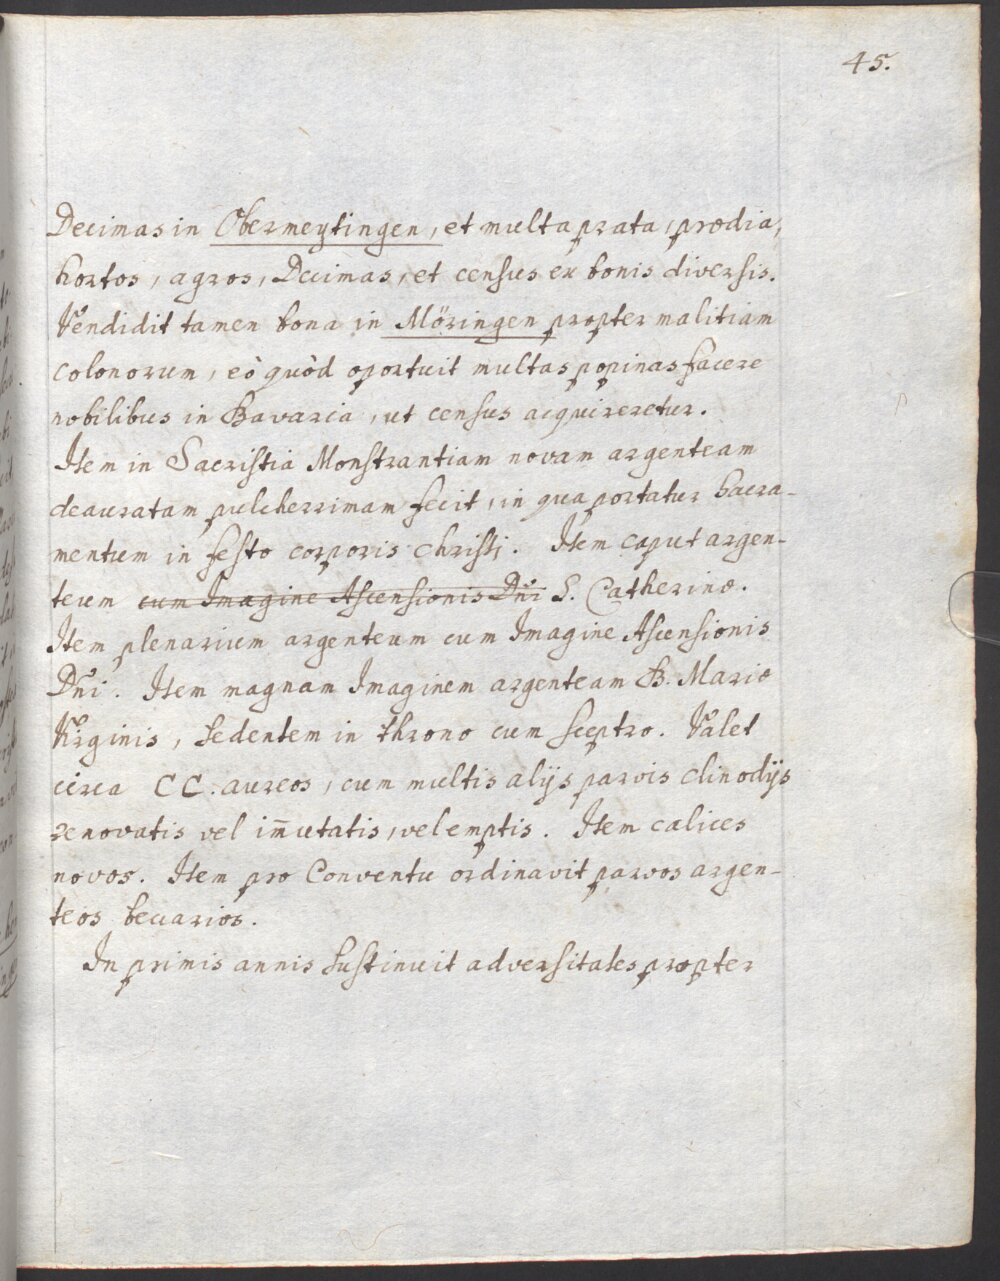 45.
Decimas in Obermeytingen, et multa prata, prædia,
hortos, agros, Decimas, et census ex bonis diversis.
Vendidit tamen bona in Möringen propter malitiam
colonorum, eò quòd oportuit multas popinas facere
nobilibus in Bavaria, ut census acquireretur.
Item in Sacristia Monstrantiam novam argenteam
deauratam pulcherrimam fecit, in qua portatur Sacra-
mentum in festo corporis Christi. Item caput argen-
teum cum Imagine Ascensionis Dñi S. Catherinæ.
Item plenarium argenteum cum Imagine Ascensionis
Dñi. Item magnam Imaginem argenteam B. Mariæ
Virginis, sedentem in throno cum sceptro. Valet
circa CC. aureos, cum multis alijs parvis clinodijs
renovatis vel im̄utatis, vel emptis. Item calices
novos. Item pro Conventu ordinavit parvos argen-
teos becarios.
In primis annis sustinuit adversitates propter